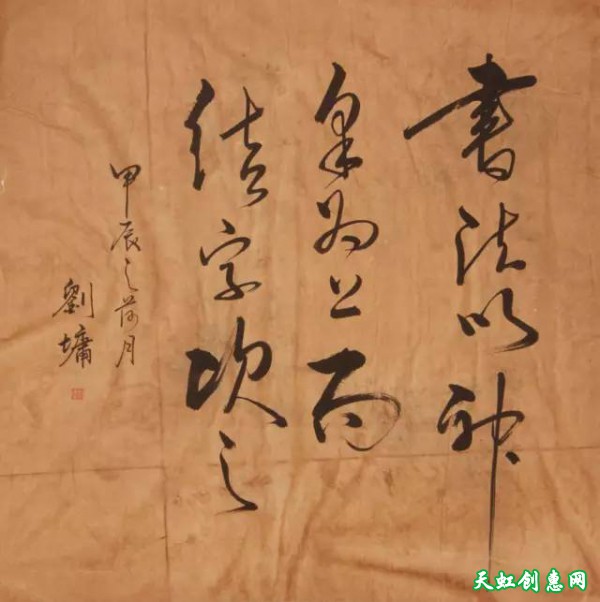 書法以神
采為上而
結字次之
甲辰之荷月
劉墉
天虹创惠网